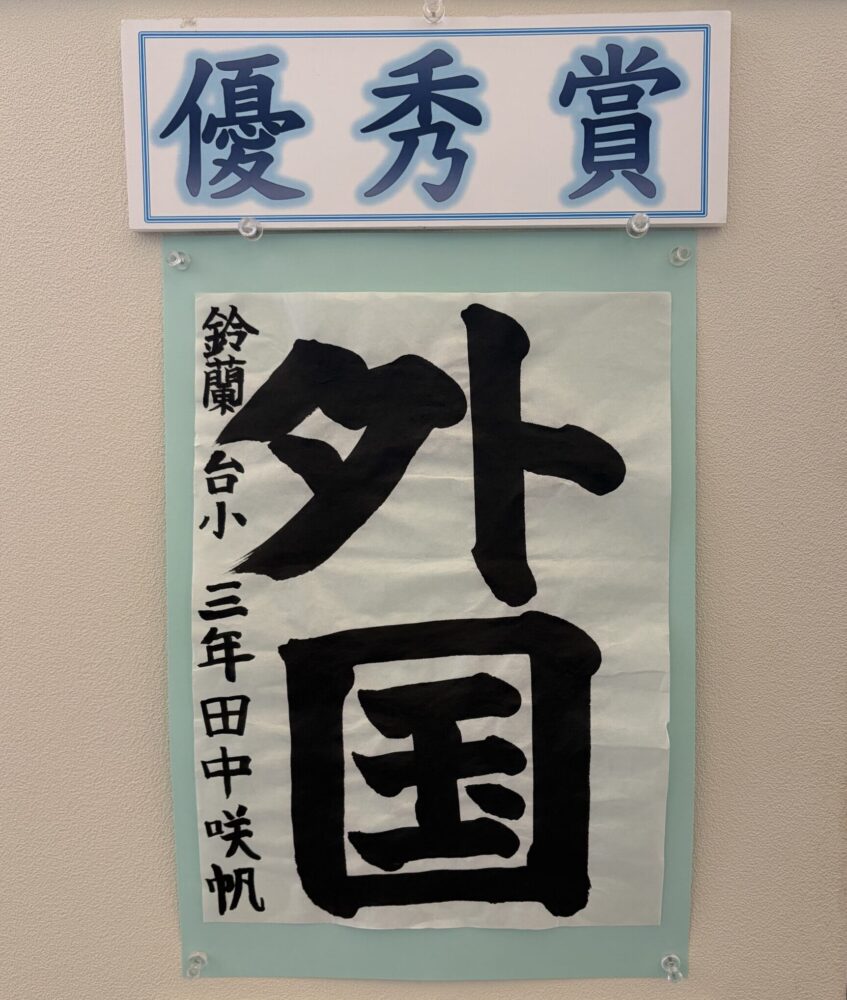 優秀賞
外国
鈴蘭台小 三年田中咲帆